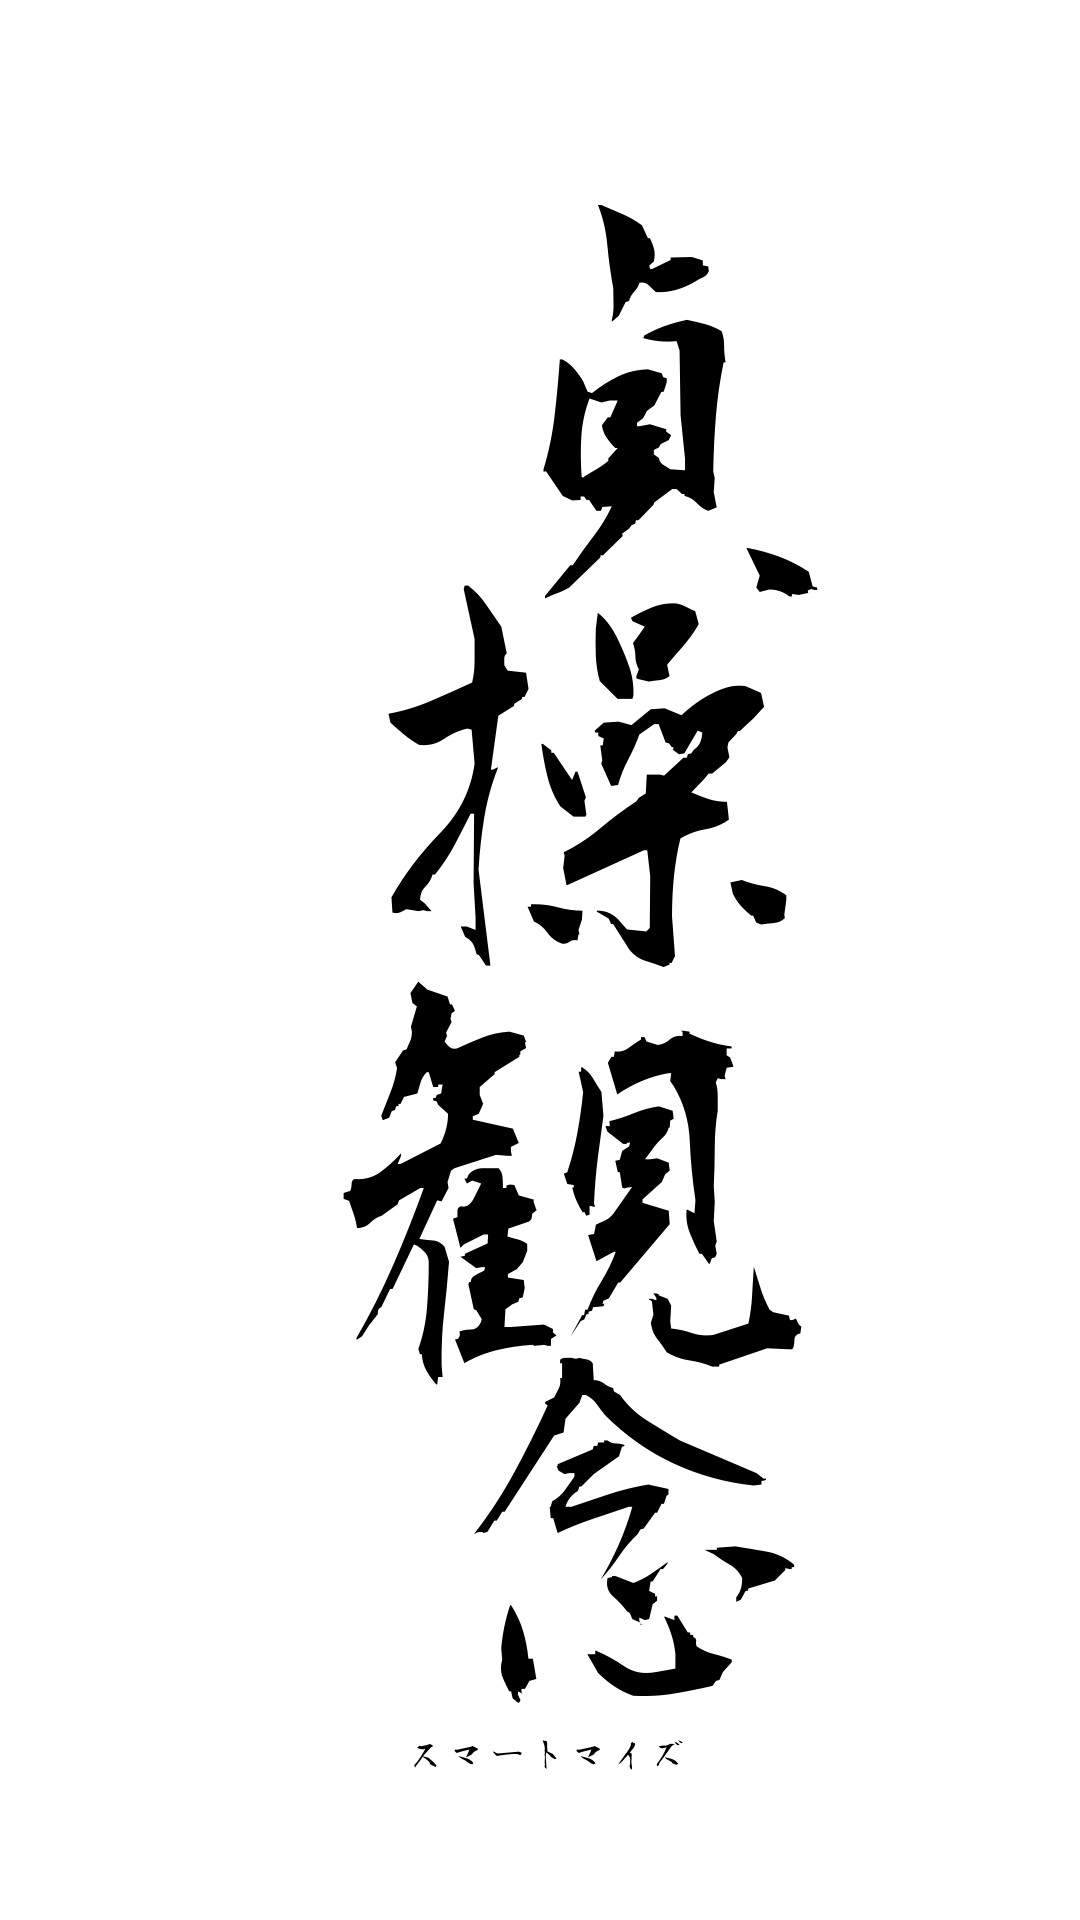 貞操観念
スマートマイズ